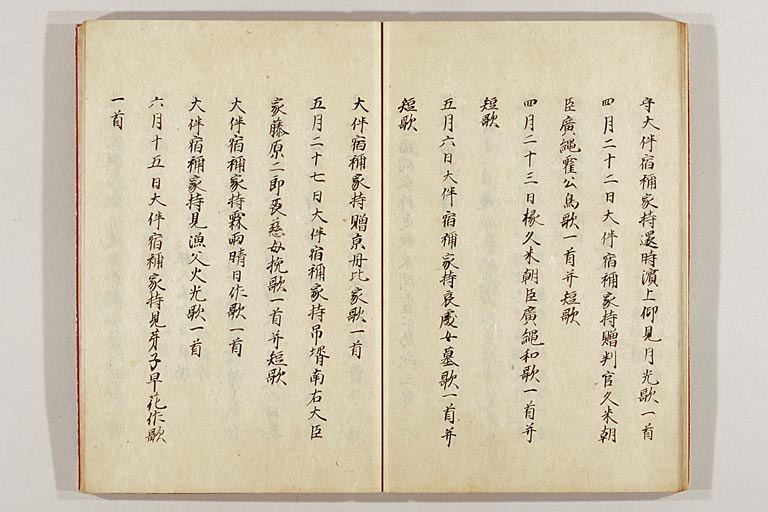 守大伴宿祢家持還時濱上仰見月光歌一首
四月二十二日大伴宿祢家持贈判官久米朝
臣廣縄霍公鳥歌一首并短歌
四月二十三日掾久米朝臣廣縄和歌一首并
短歌
五月六日大伴宿祢家持 處女墓歌一首并
短歌
大伴宿祢家持贈京丹比家歌一首
五月二十七日大伴宿祢家持吊壻南右大臣
家藤原二郎喪慈母挽歌一首并短歌
大伴宿祢家持霖雨晴日作歌一首
大伴宿祢家持見漁父火光歌一首
六月十五日大伴宿祢家持見芽子早花作歌
一首